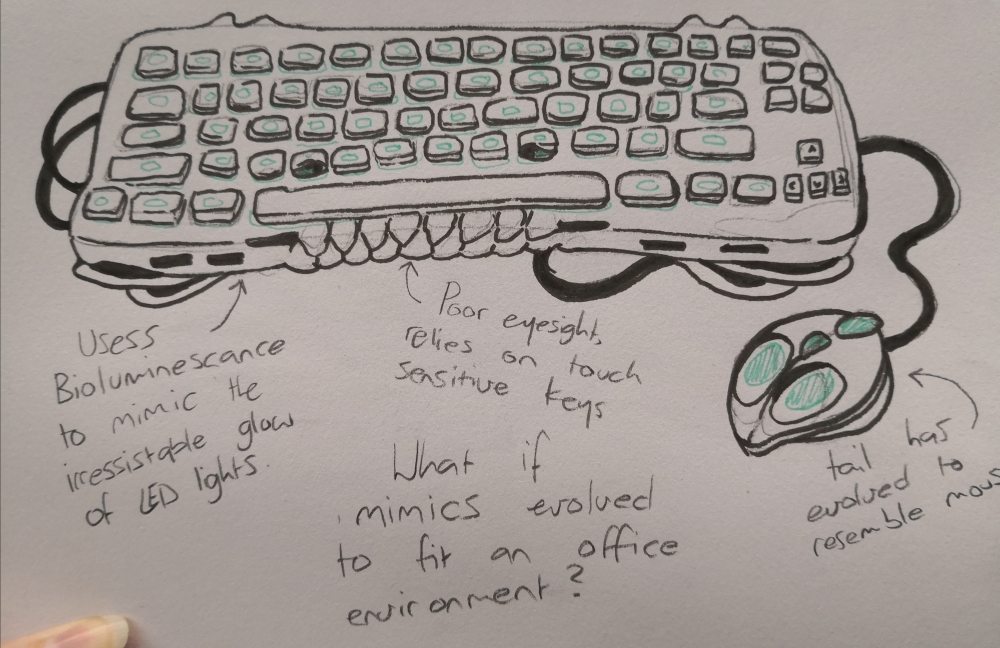 Usess
Bioluminescance
to mimic the
irressistable glow
of LED lights.
Poor eyesight,
relies on touch
sensitive keys
tail has
evolved to
resemble mous
What if
mimics evolved
to fit an office
environment?